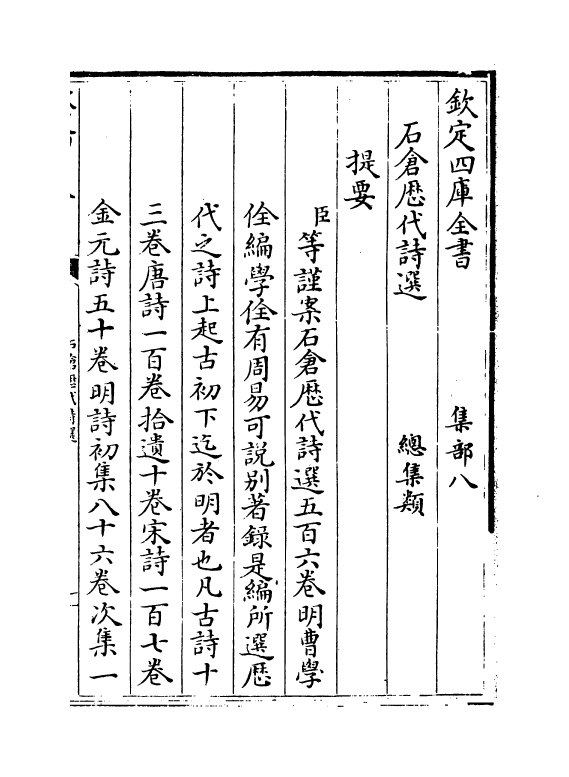 欽定四庫全書　集部八
石倉歴代詩選　總集類
提要
臣等謹案石倉歴代詩選五百六卷明曹學
佺編學佺有周易可說别著錄是編所選歴
代之詩上起古初下迄於明者也凡古詩十
三卷唐詩一百卷拾遺十卷宋詩一百七卷
金元詩五十卷明詩初集八十六卷次集一